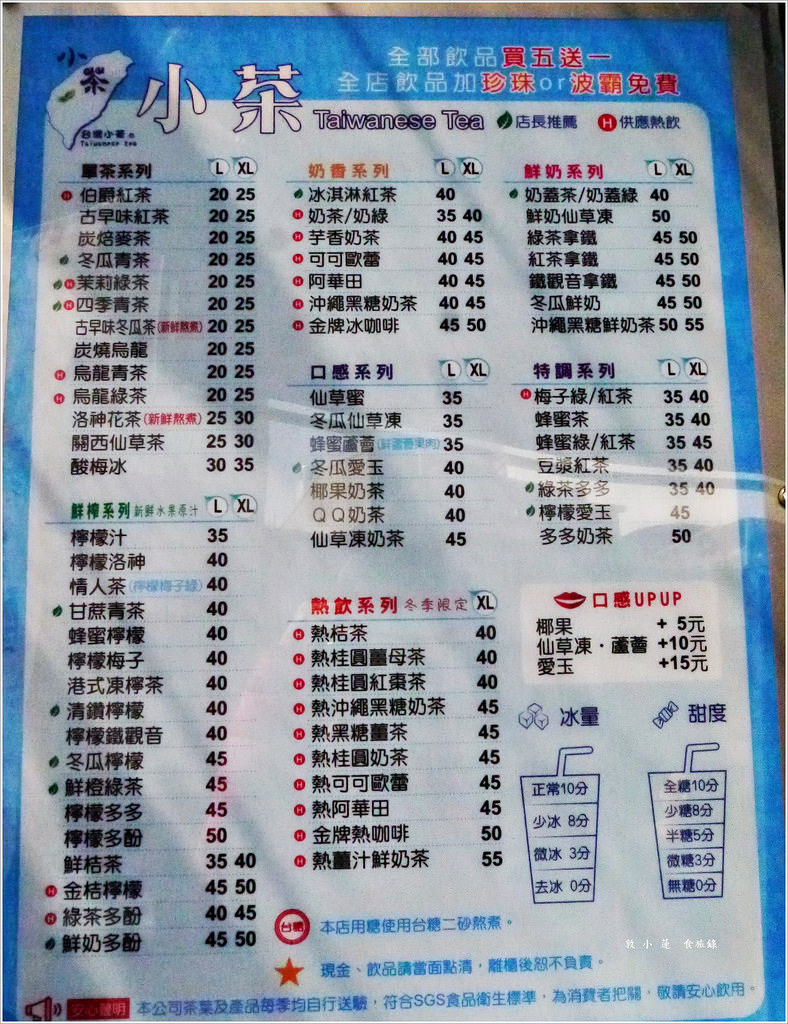 小茶
台灣小茶
Taiwanese tea
小茶 Taiwanese Tea
全部飲品買五送一
全店飲品加珍珠or波霸免費
店長推薦 H供應熱飲
單茶系列 L XL
H 伯爵紅茶 20 25
古早味紅茶 20 25
炭焙麥茶 20 25
冬瓜青茶 20 25
H 茉莉綠茶 20 25
H 四季青茶 20 25
古早味冬瓜茶(新鮮熬煮) 20 25
炭燒烏龍 20 25
H 烏龍青茶 20 25
H 烏龍綠茶 20 25
洛神花茶(新鮮熬煮) 25 30
關西仙草茶 25 30
酸梅冰 30 35
鮮榨系列 新鮮水果原汁 L XL
檸檬汁 35
檸檬洛神 40
情人茶(檸檬梅子綠) 40
甘蔗青茶 40
蜂蜜檸檬 40
檸檬梅子 40
港式凍檸茶 40
清鑽檸檬 40
檸檬鐵觀音 40
冬瓜檸檬 45
鮮橙綠茶 45
檸檬多多 45
檸檬多酚 50
鮮桔茶 35 40
H 金桔檸檬 45 50
H 綠茶多酚 40 45
鮮奶多酚 45 50
奶香系列 L XL
冰淇淋紅茶 40
H 奶茶/奶綠 35 40
H 芋香奶茶 40 45
H 可可歐蕾 40 45
H 阿華田 40 45
H 沖繩黑糖奶茶 40 45
H 金牌冰咖啡 45 50
口感系列 L XL
仙草蜜 35
冬瓜仙草凍 35
蜂蜜蘆薈(鮮蘆薈果肉) 35
冬瓜愛玉 40
椰果奶茶 40
QQ奶茶 40
仙草凍奶茶 45
熱飲系列 冬季限定 XL
H 熱桔茶 40
H 熱桂圓薑母茶 40
H 熱桂圓紅棗茶 40
H 熱沖繩黑糖奶茶 45
H 熱黑糖薑茶 45
H 熱桂圓奶茶 45
H 熱可可歐蕾 45
H 熱阿華田 45
H 金牌熱咖啡 50
H 熱薑汁鮮奶茶 55
鮮奶系列 L XL
奶蓋茶/奶蓋綠 40
鮮奶仙草凍 50
綠茶拿鐵 45 50
紅茶拿鐵 45 50
鐵觀音拿鐵 45 50
冬瓜鮮奶 45 50
沖繩黑糖鮮奶茶 50 55
特調系列 L XL
H 梅子綠/紅茶 35 40
蜂蜜茶 35 40
蜂蜜綠/紅茶 35 45
豆漿紅茶 35 40
綠茶多多 35 40
檸檬愛玉 45
多多奶茶 50
口感UPUP
椰果 + 5元
仙草凍·蘆薈 +10元
愛玉 +15元
冰量
正常10分
少冰 8分
微冰 3分
去冰 0分
甜度
全糖10分
少糖8分
半糖5分
微糖3分
無糖0分
台糖 本店用糖使用台糖二砂熬煮。
現金、飲品請當面點清，離櫃後恕不負責。
安心聲明 本公司茶葉及產品每季均自行送驗，符合SGS食品衛生標準，為消費者把關，敬請安心飲用。
小蓮 食旅錄